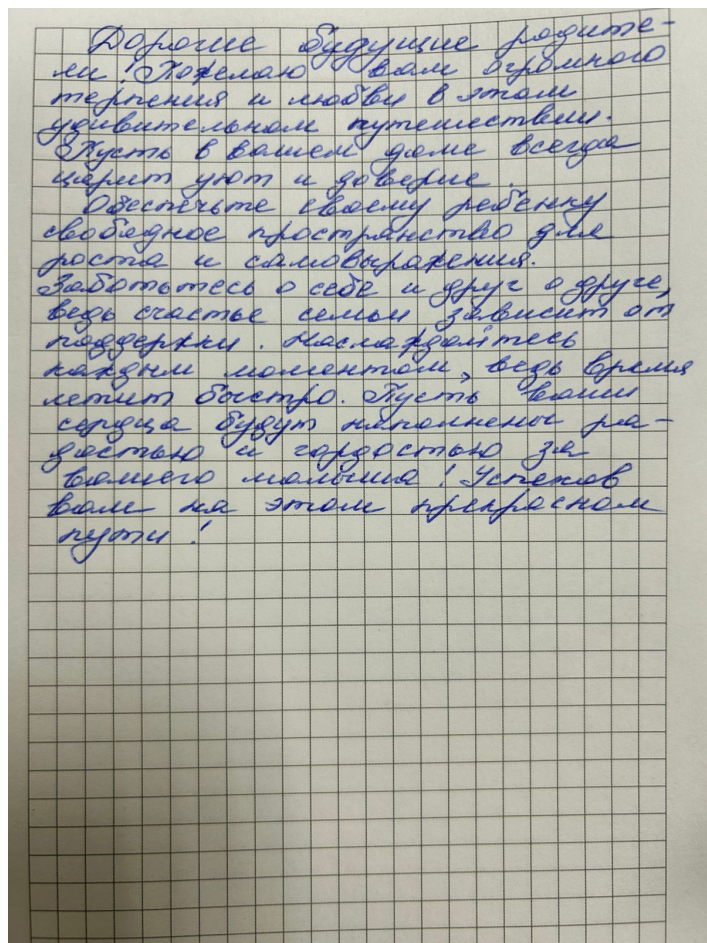 Дорогие будущие родите-
ли! Пожелаю вам огромного
терпения и любви в этом
удивительном путешествии.
Пусть в вашем доме всегда
царит уют и доверие.
Обеспечьте своему ребенку
свободное пространство для
роста и самовыражения.
Заботьтесь о себе и друг о друге,
ведь счастье семьи зависит от
поддержки. Наслаждайтесь
каждым моментом, ведь время
летит быстро. Пусть ваши
сердца будут наполнены ра-
достью и гордостью за
вашего малыша! Успехов
вам на этом прекрасном
пути!